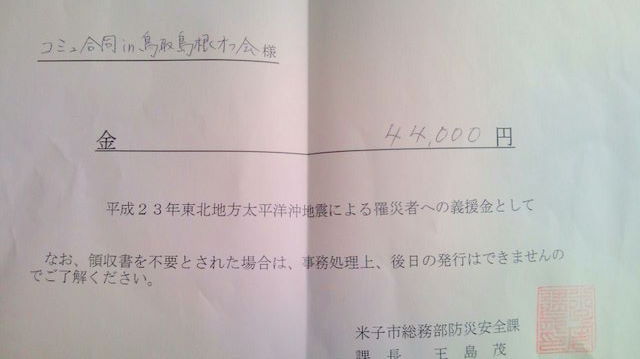 コミュ合同in鳥取島根オフ会様
金 44,000円
平成23年東北地方太平洋沖地震による罹災者への義援金として
なお、領収書を不要とされた場合は、事務処理上、後日の発行はできませんの
でご了解ください。
米子市総務部防災安全課
課長 王島茂